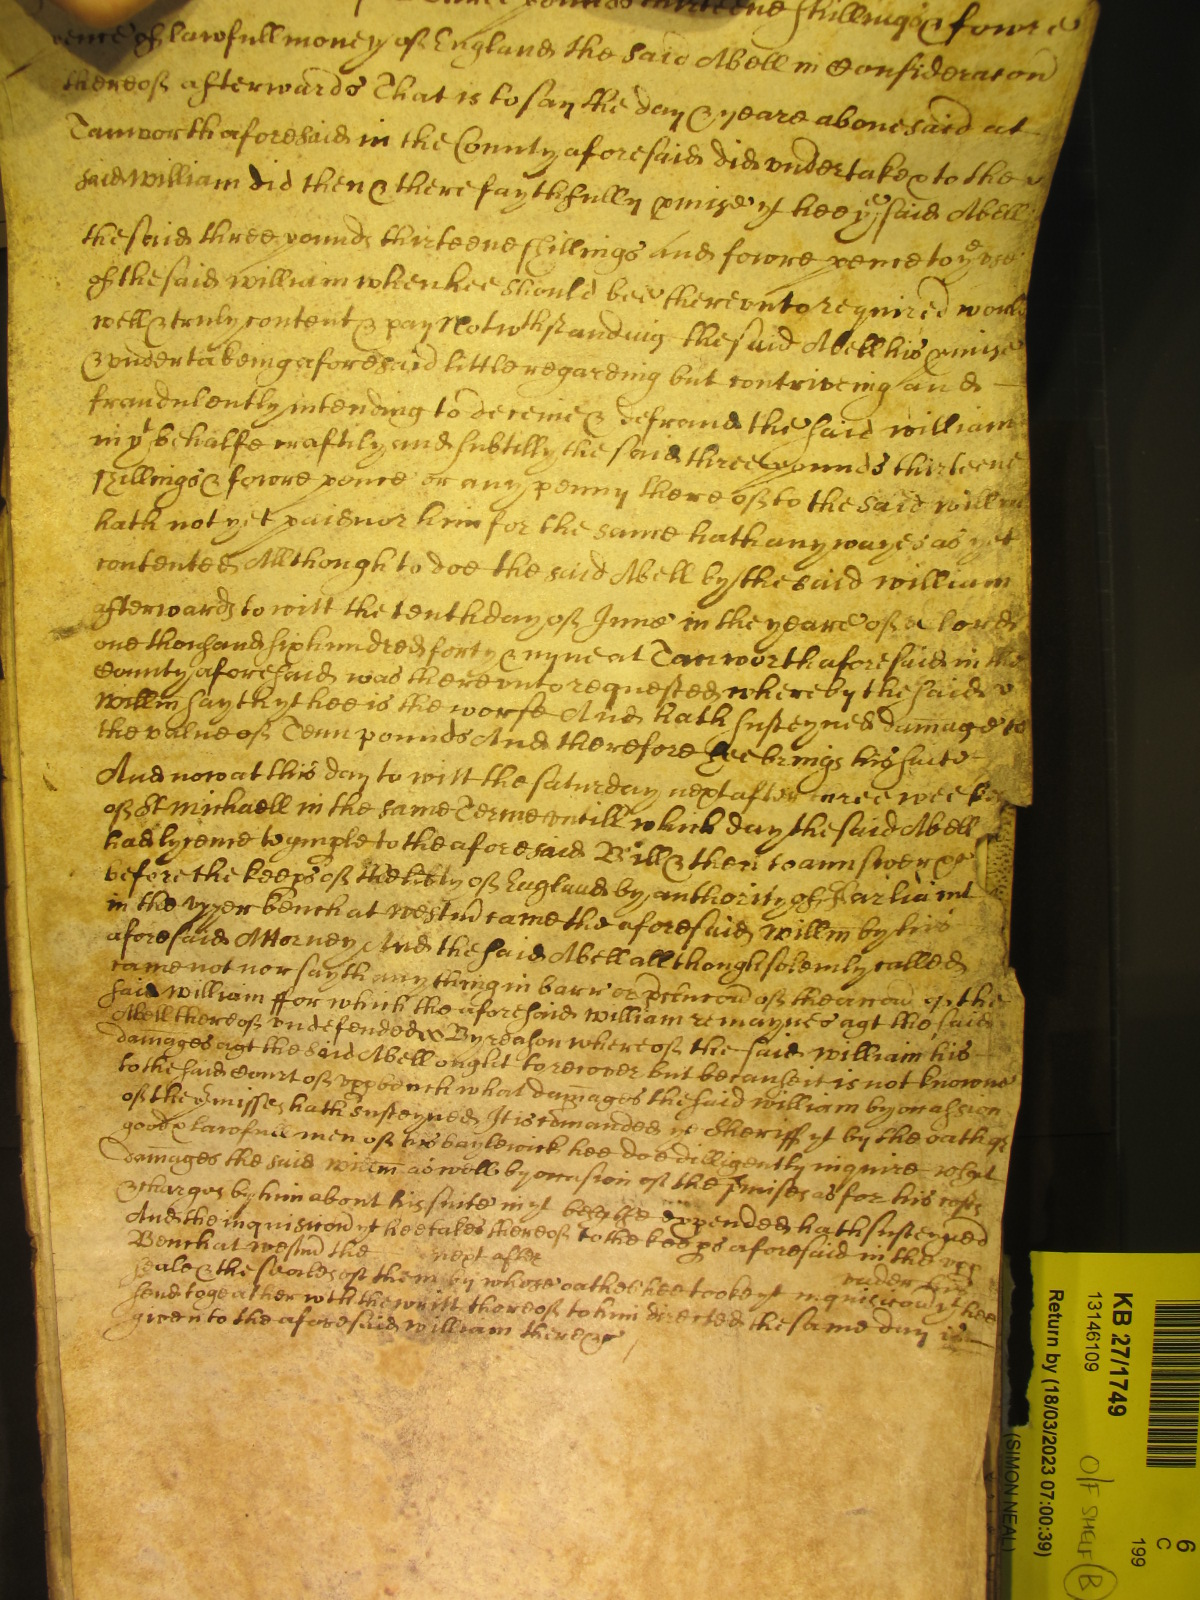 three pounds thirteene shillings & fowre
pence of lawfull money of England the said Abell in Consideracon
thereof afterwards That is to say the day & yeare abovesaid at
Tamworth aforesaid in the County aforesaid did undertake & to the
said William did then & there faythfully pmise yt hee ye said Abell
the said three pounds thirteene shillings and fowre pence to ye use
of the said William when hee should bee thereunto required would
well & truly content & pay Notwthstanding the said Abell his pmise
& undertakeing aforesaid little regarding but contriveing and
fraudulently intending to deceive & defraud the said William
in yt behalfe craftily and subtilly the said three pounds thirteene
shillings & fowre pence or any penny thereof to the said Willm
hath not yet paid nor him for the same hath any wayes as yet
contented Allthough to doe the said Abell by the said William
afterwards to witt the tenth day of June in the yeare of or lord
one thousand six hundred forty & nyne at Tamworth aforesaid in the
County aforesaid was thereunto requested whereby the said
Willm sayth yt hee is the worse And hath susteyned damage to
the value of Tenn pounds And therefore hee brings his suite
And now at this day to witt the Saturday next after three weekes
of St Michaell in the same Terme untill which day the said Abell
had lycence to imple to the aforesaid Bill & then to aunswere &c
before the keeps of the libty of England by authority of Parliamt
in the upper bench at Westm came the aforesaid Willm by his
aforesaid Attorney And the said Abell allthough solemly called
came not nor sayth any thing in barr or of the accon of the
said William ffor which the aforesaid William remaynes agt the said
Abell thereof undefended &c By reason whereof the said William his
damages agt the said Abell ought to recover but because it is not knowne
to the said Court of upp bench what damages the said William by occasion
of the pmisses hath susteyned It is comanded ye Sheriff yt by the oath of
good & lawfull men of his baylewick hee doe dilligently inquire what
damages the said Willm as well by occasion of the pmises as for his costs
& charges by him about his suite in yt behalfe expended hath susteyned
And the inquisicon yt hee takes thereof to the keeps aforesaid in the upp
Bench at Westm the next after under his
seale & the seales of them by whose oathes hee tooke yt inquisicon yt hee
send togeather wth the writt thereof to him directed the same day is
given to the aforesaid William there &c
KB 27/1749
13146109
Return by (18/03/2023 07:00:39)
(SIMON NEAL)
O/F SHELF (B)
6
C
199